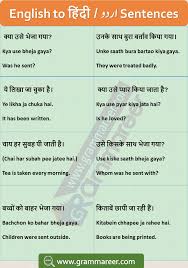 English to हिंदी / اردو Sentences
क्या उसे भेजा गया?
Kya use bheja gaya?
Was he sent?
उनके साथ बुरा बर्ताव किया गया।
Unke saath bura bartao kiya gaya.
They were treated badly.
ये लिखा जा चुका है।
Ye likha ja chuka hai.
It has been written.
क्या उसे प्यार किया जाता है?
Kya use pyar kiya jata hai?
Is he loved?
चाय हर सुबह पी जाती है।
(Chai har subah pee jatee hai.)
Tea is taken every morning.
उसे किसके साथ भेजा गया?
Use kiske saath bheja gaya?
Whom was he sent with?
बच्चों को बाहर भेजा गया।
Bachchon ko bahar bheja gaya.
Children were sent outside.
किताबें छापी जा रही हैं।
Kitabein chhapee ja rahee hai.
Books are being printed.
www.grammareer.com